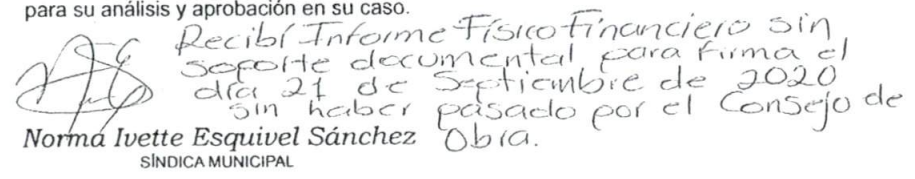 para su análisis y aprobación en su caso.
Recibí Informe Físico Financiero sin
soporte documental para firma el
día 21 de Septiembre de 2020
sin haber pasado por el Consejo de
Obra.
Norma Ivette Esquivel Sánchez
SÍNDICA MUNICIPAL